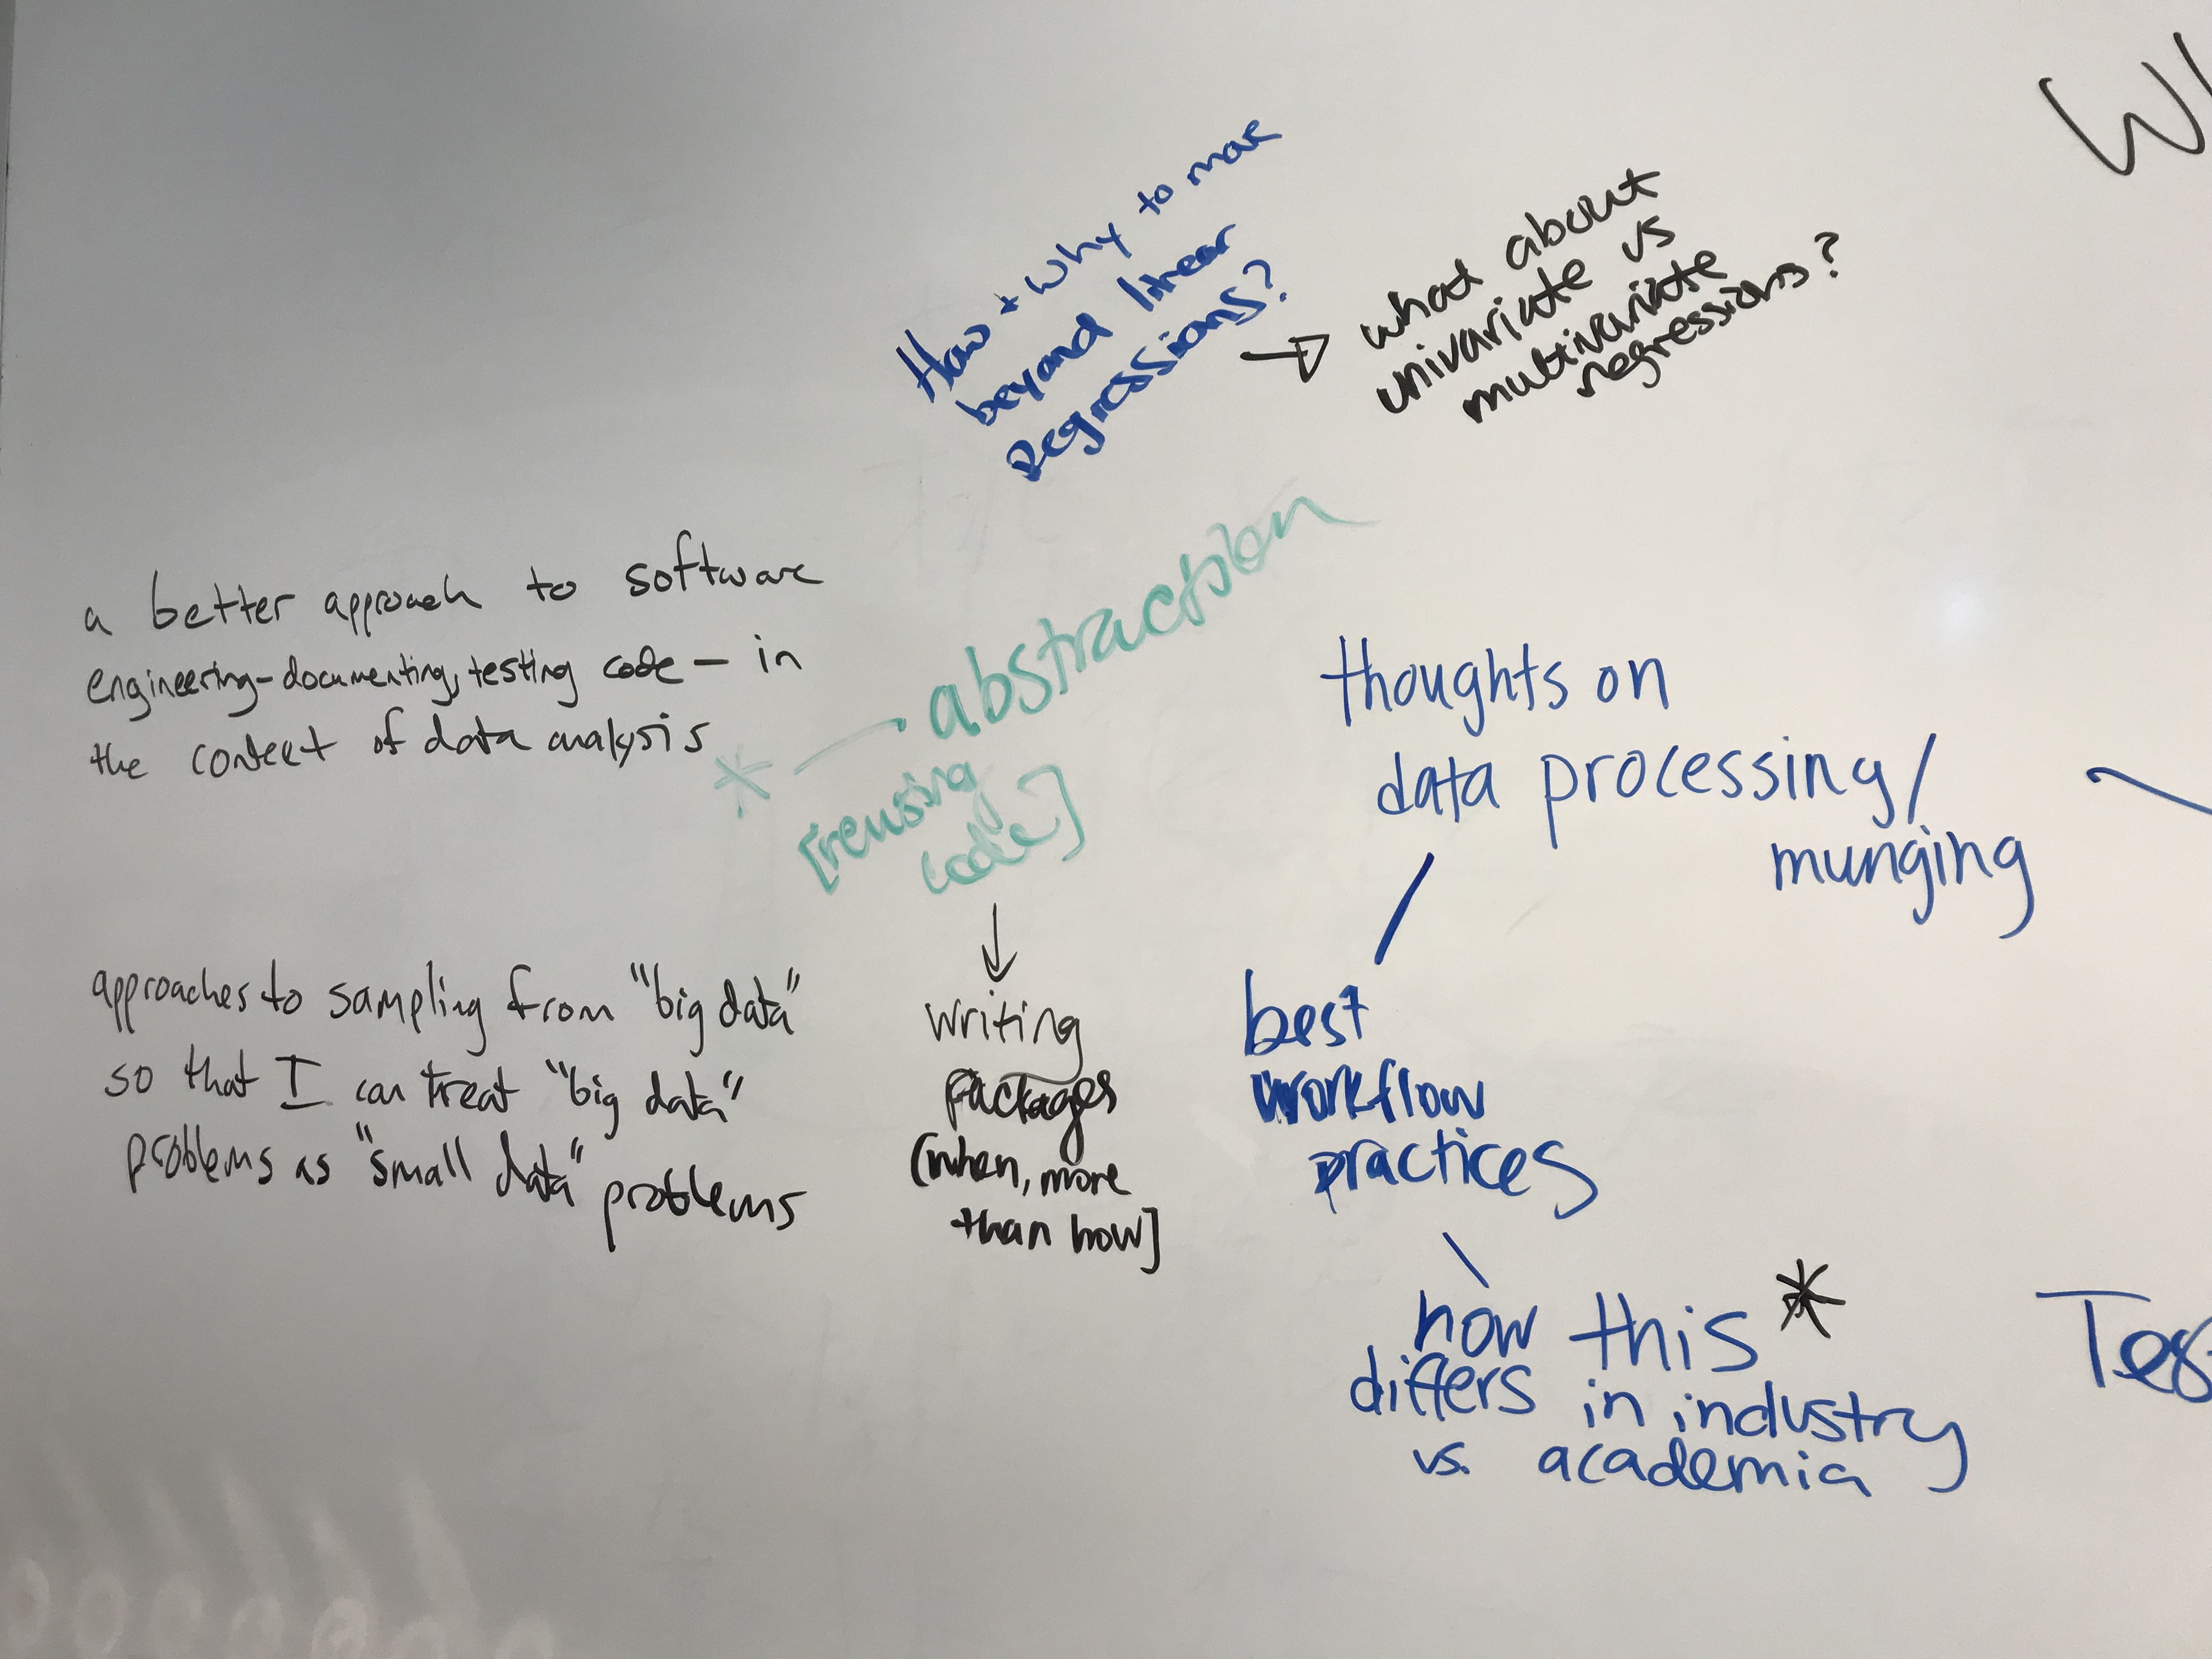 How + Why to move
beyond linear
regressions?
→ what about
univariate vs
multivariate
regressions?
a better approach to software
engineering-documenting, testing code - in
the context of data analysis
* abstraction
[reusing
code]
writing
packages
(when, more
than how]
approaches to sampling from "big data"
so that I can treat "big data"
problems as "small data" problems
thoughts on
data processing/
munging
best
workflow
practices
how this *
differs in industry
vs. academia